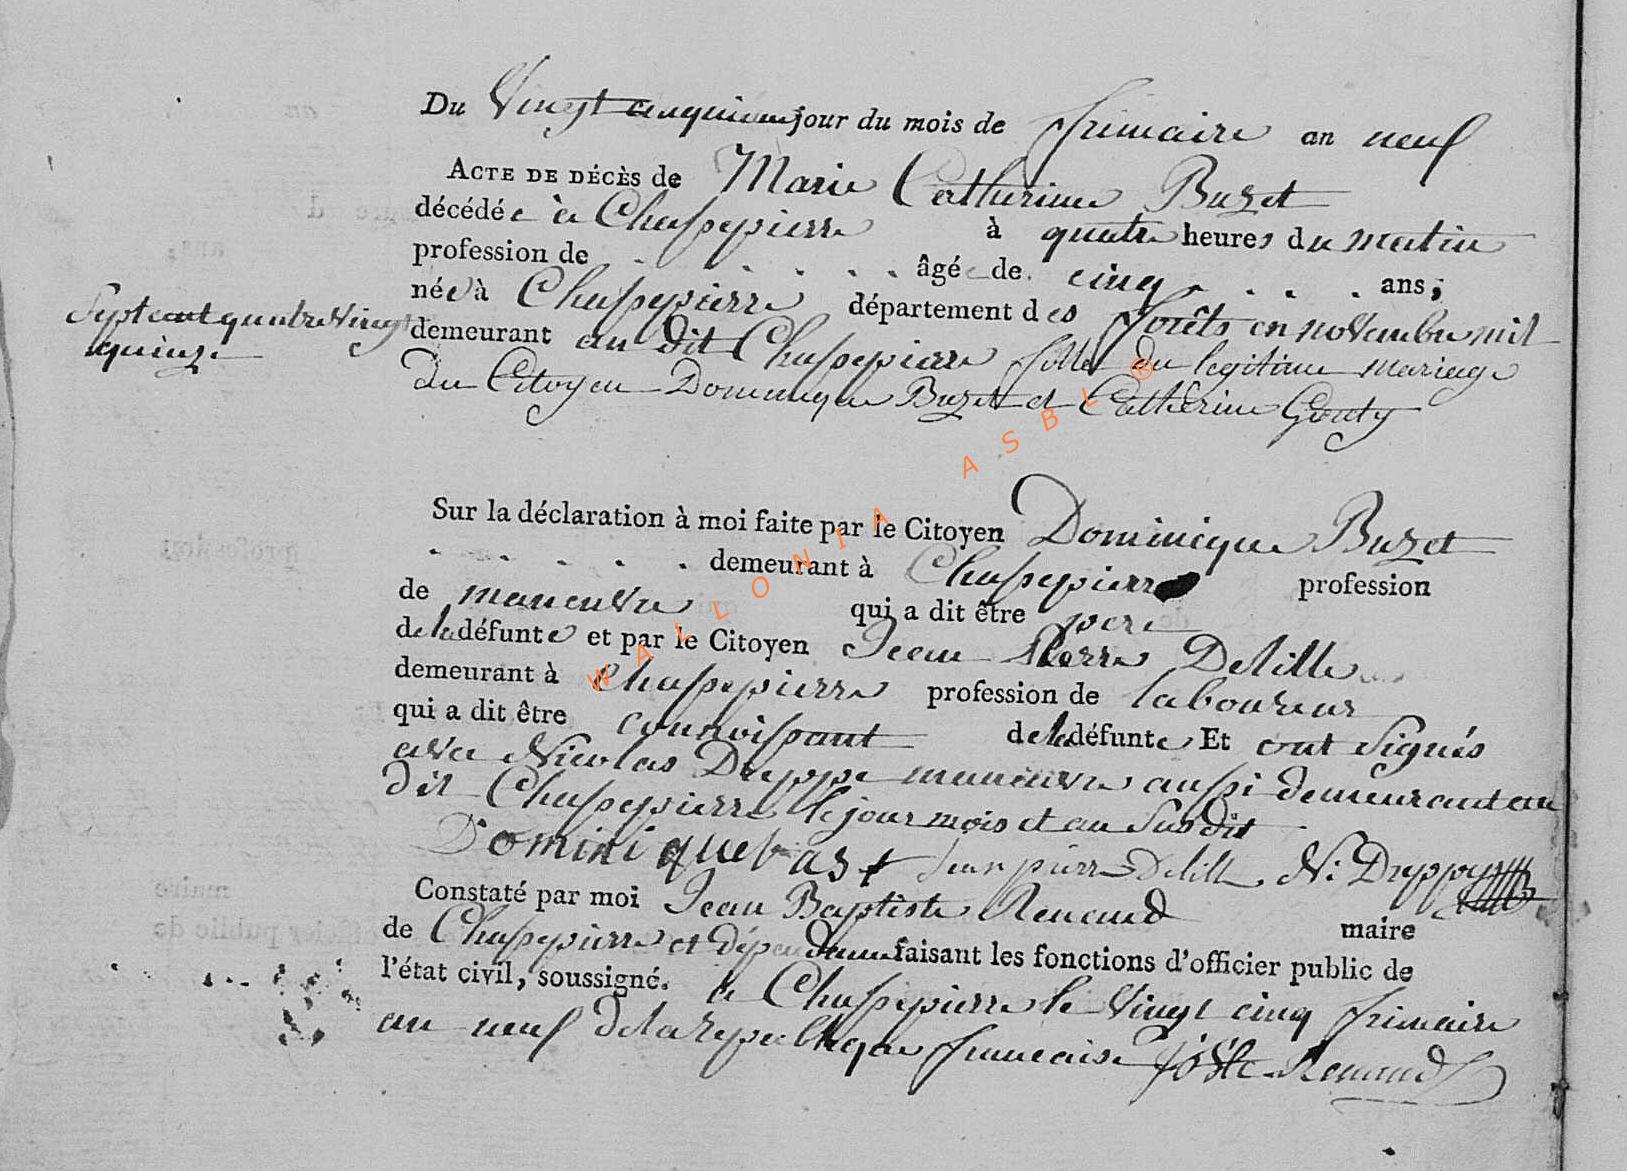 Du Vingt cinquieme jour du mois de frimaire an neuf
ACTE DE DÉCÈS de Marie Catherine Buzet
décédée à Chassepierre à quatre heures du matin
profession de . . . . . âgée de cinq . . . . ans,
née à Chassepierre département des forêts en novembre mil
Sept cent quatre Vingt
quinze
demeurant au dit Chassepierre fille du legitime mariage
du Citoyen Dominique Buzet et Catherine Gouty
Sur la déclaration à moi faite par le Citoyen Dominique Buzet
. . . . . demeurant à Chassepierre profession
de maneuvre qui a dit être pere
de la défunte et par le Citoyen Jean Pierre Delille
demeurant à Chassepierre profession de laboureur
qui a dit être connoissant de la défunte Et ont Signés
avec Nicolas Dreppe maneuvre aussi demeurant au
dit Chassepierre le jour mois et an Susdit
Dominique bast Jean pierre Delille N: Dreppe
Constaté par moi Jean Baptiste Renaud maire
de Chassepierre et dépendance faisant les fonctions d'officier public de
l'état civil, soussigné. a Chassepierre le Vingt cinq frimaire
an neuf de la republique francaise JBte Renaud
WALLONIA ASBL ®